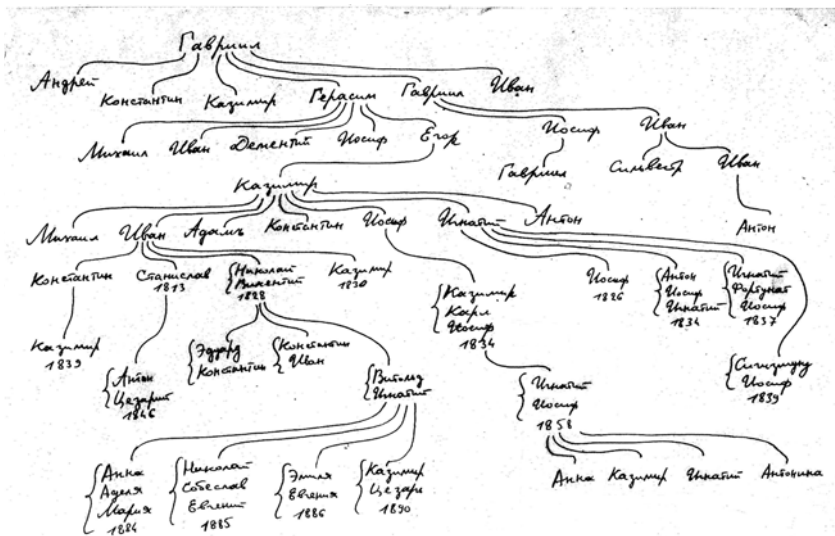 Гавриил
Андрей Константин Казимир Герасим Гавриил Иван
Михаил Иван Дементий Иосиф Егор Иосиф Иван
Гавриил Сильвестр Иван
Казимир
Михаил Иван Адамъ Константин Иосиф Игнатий Антон Антон
Константин Станислав 1813 Николай Викентий 1828 Казимир 1830
Казимир Карл Иосиф 1834
Иосиф 1826 Антон Иосиф Игнатий 1834 Игнатий Фортунат Иосиф 1837
Казимир 1839 Антон Цезарий 1846 Эдуард Константин Константин Иван
Витольд Игнатий
Игнатий Иосиф 1858
Сигизмунд Иосиф 1839
Анна Аделя Мария 1884
Николай Собеслав Евгений 1885
Эмиля Евгения 1886
Казимир Цезарь 1890
Анна Казимир Игнатий Антонина